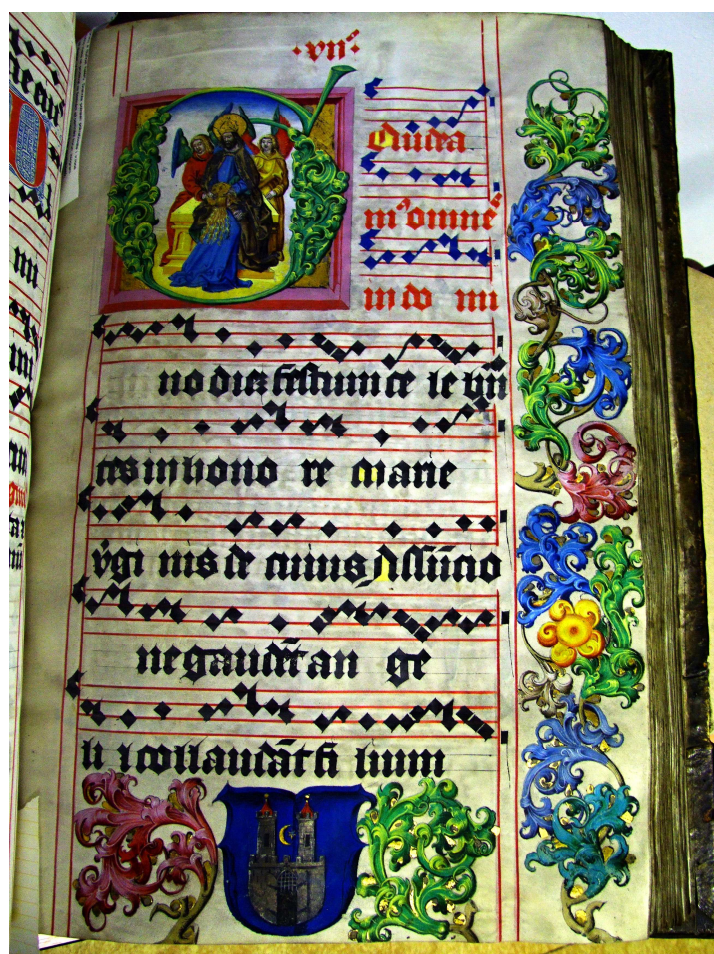 ·vii·
Gaudea
m⁹ omnes
in do mi
no diē festum ce le brā
tes in hono re marie
v̓gi nis de cuius Assūcio
ne gaudēt an ge
li ⁊ collaudāt fi lium